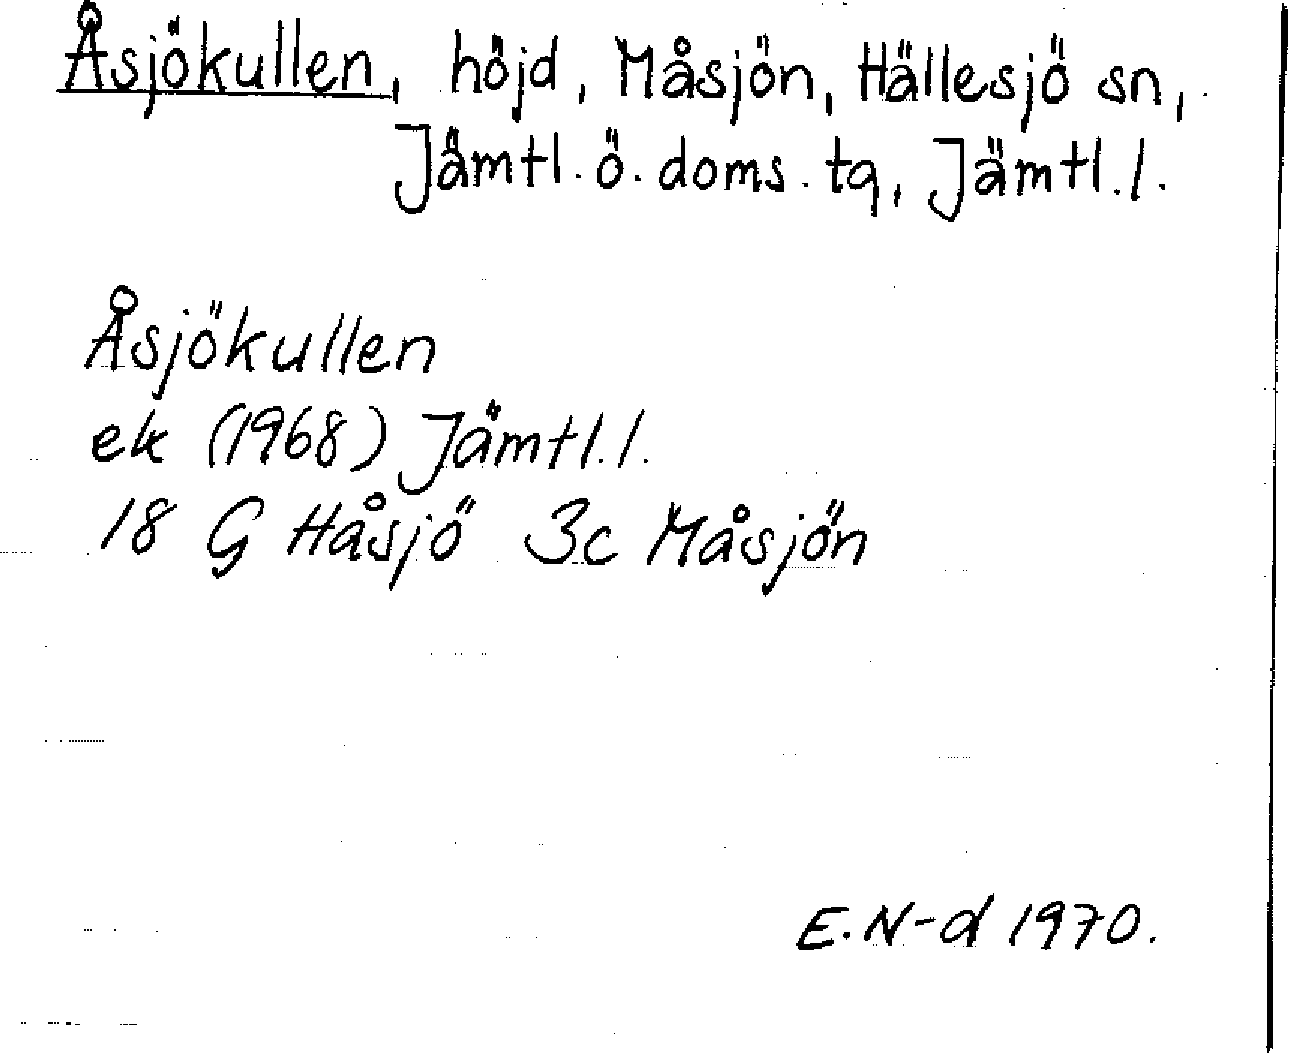 Åsjökullen, höjd, Måsjön, Hällesjö sn,
Jämtl. ö. doms. tg, Jämtl. l.
Åsjökullen
ek (1968) Jämtl. l.
18 G Håsjö 3c Måsjön
E. N-d 1970.